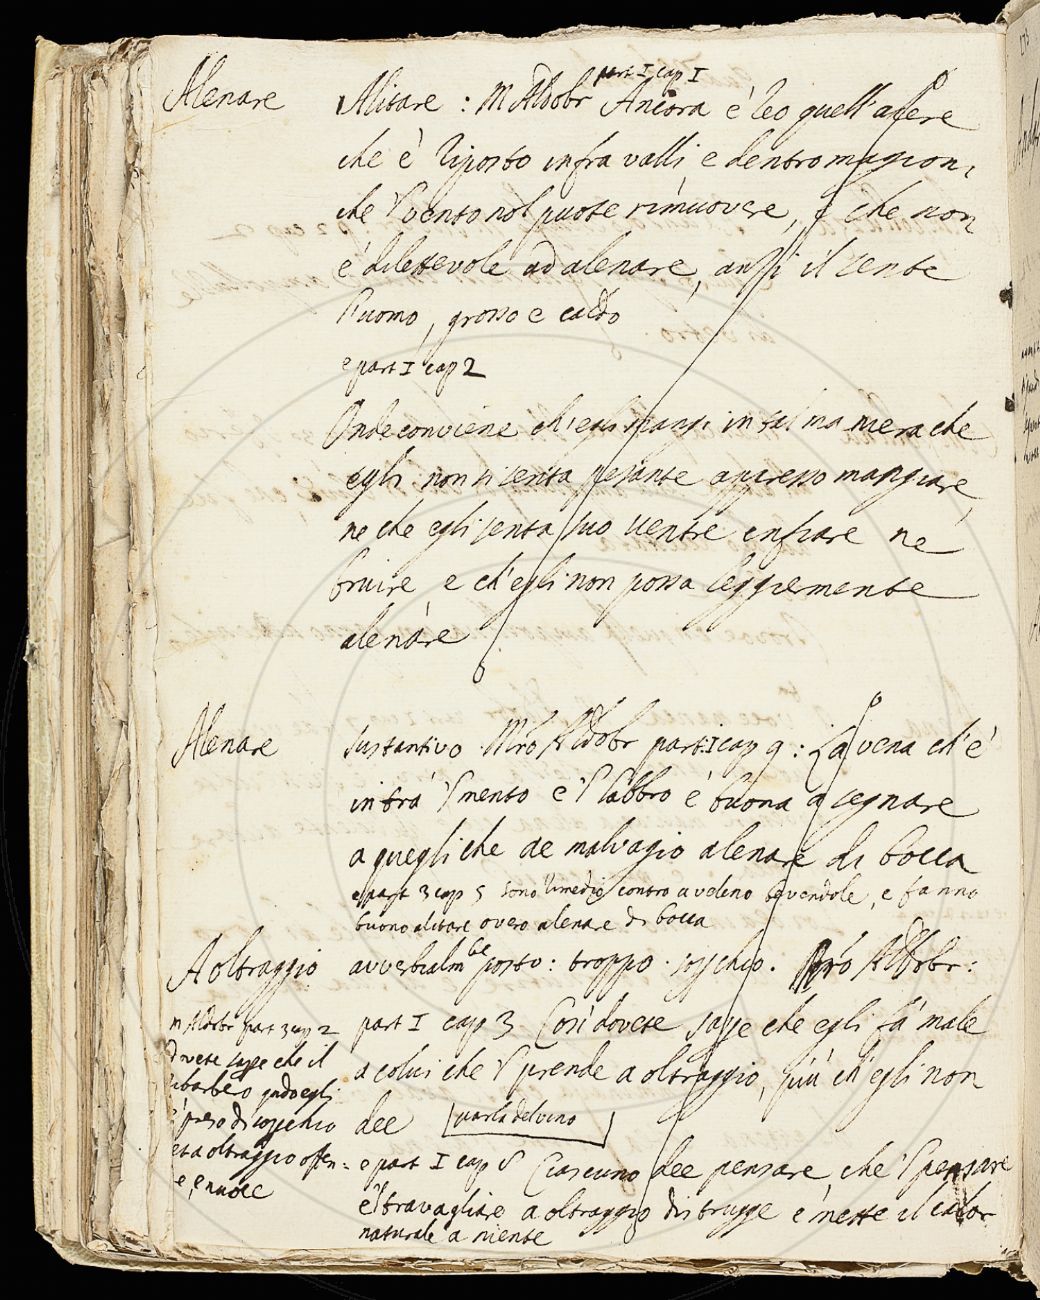 Alenare
Alitare : M Aldobr part I cap I Ancora è reo quell'aere
che è riposto infra valli e dentro magion,
che 'l vento nol puote rimuovere, e che non
è dilettevole ad alenare, anzi il sente
l'uomo, grosso e caldo
e part I cap 2
Onde conviene ch'egli mangi in tal maniera che
egli non si senta pesante appresso mangiare,
ne che egli senta suo ventre enfiare né
bruire, e ch'egli non possa leggiermente
alenare
Alenare
sustantivo Mro Aldobr part I cap 9 : La vena ch'è
infra 'l mento e 'l labbro è buona a segnare
a quegli che àe malvagio alenare di bocca
e part 3 cap 5 sono rimedio contro a veleno bevendole, e fanno
buono alitare overo alenare di bocca
A oltraggio
avverbialmte posto : troppo . soperchio . Mro Aldobr :
part I cap 3 Così dovete sape che egli fà male
a colui che 'l prende a oltraggio, più ch'egli non
dee parla del vino
e part I cap Ciascuno dee pensare, che 'l pensare
e 'l travagliare a oltraggio distrugge e mette il calor
naturale a niente
M Aldobr part 3 cap 2
Dovete sape che il
qndo egli
è preso di soperchio
et a oltraggio offen=
e, e nuoce